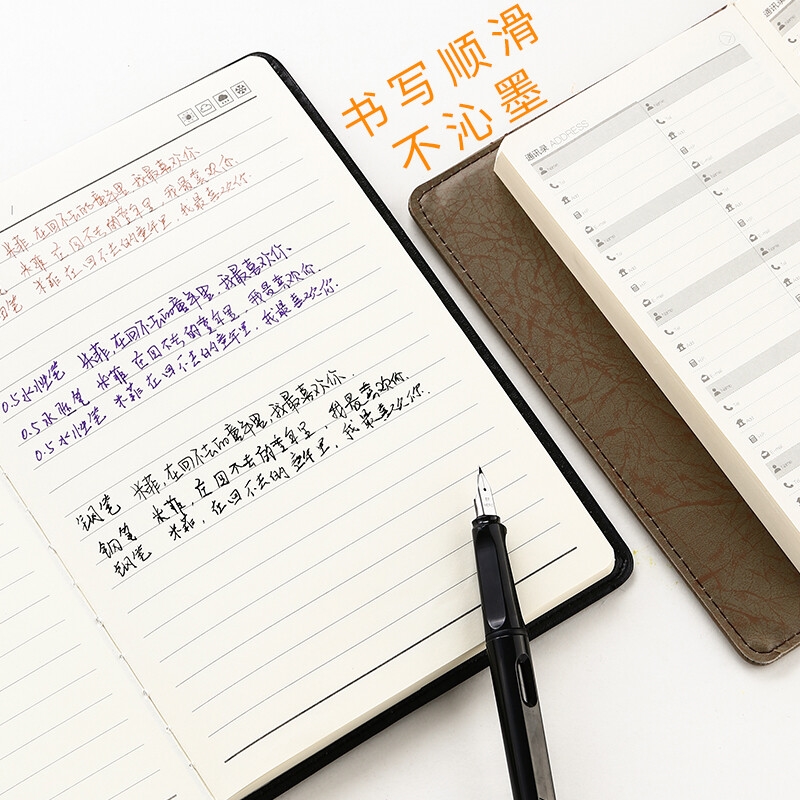 书写顺滑
不沁墨
米菲，在回不去的童年里，我最喜欢你、
米菲 在回不去的童年里，我最喜欢你、
笔 米菲 在回不去的童年里，我最喜欢你、
0.5水性笔 米菲，在回不去的童年里，我最喜欢你、
0.5水性笔 米菲 在回不去的童年里，我最喜欢你、
0.5水性笔 米菲 在回不去的童年里，我最喜欢你、
钢笔 米菲，在回不去的童年里，我最喜欢你、
钢笔 米菲，在回不去的童年里，我最喜欢你、
钢笔 米菲，在回不去的童年里，我最喜欢你、
通讯录 ADDRESS
通讯录